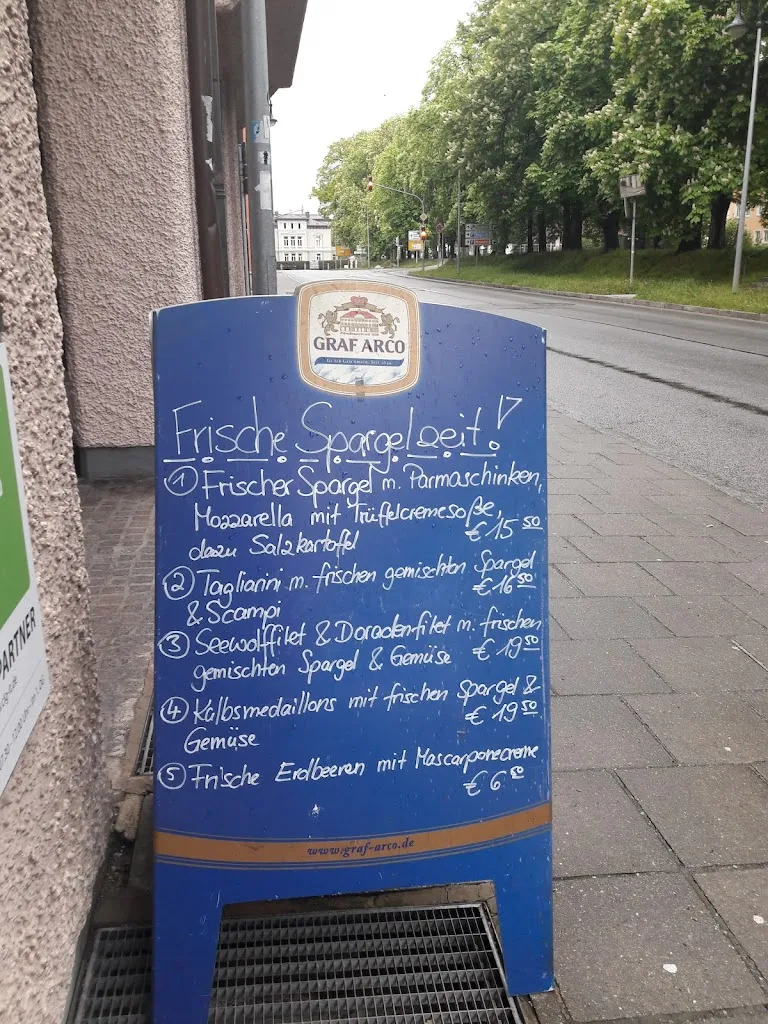 GRAF ARCO
Frische Spargelzeit!
① Frischer Spargel m. Parmaschinken,
Mozzarella mit Trüffelcremesoße,
dazu Salzkartoffel € 15 50
② Tagliarini m. frischen gemischten Spargel
& Scampi € 16 50
③ Seewolffilet & Doradenfilet m. frischen
gemischten Spargel & Gemüse € 19 50
④ Kalbsmedaillons mit frischen Spargel &
Gemüse € 19 50
⑤ Frische Erdbeeren mit Mascarponecreme
€ 6 50
www.graf-arco.de